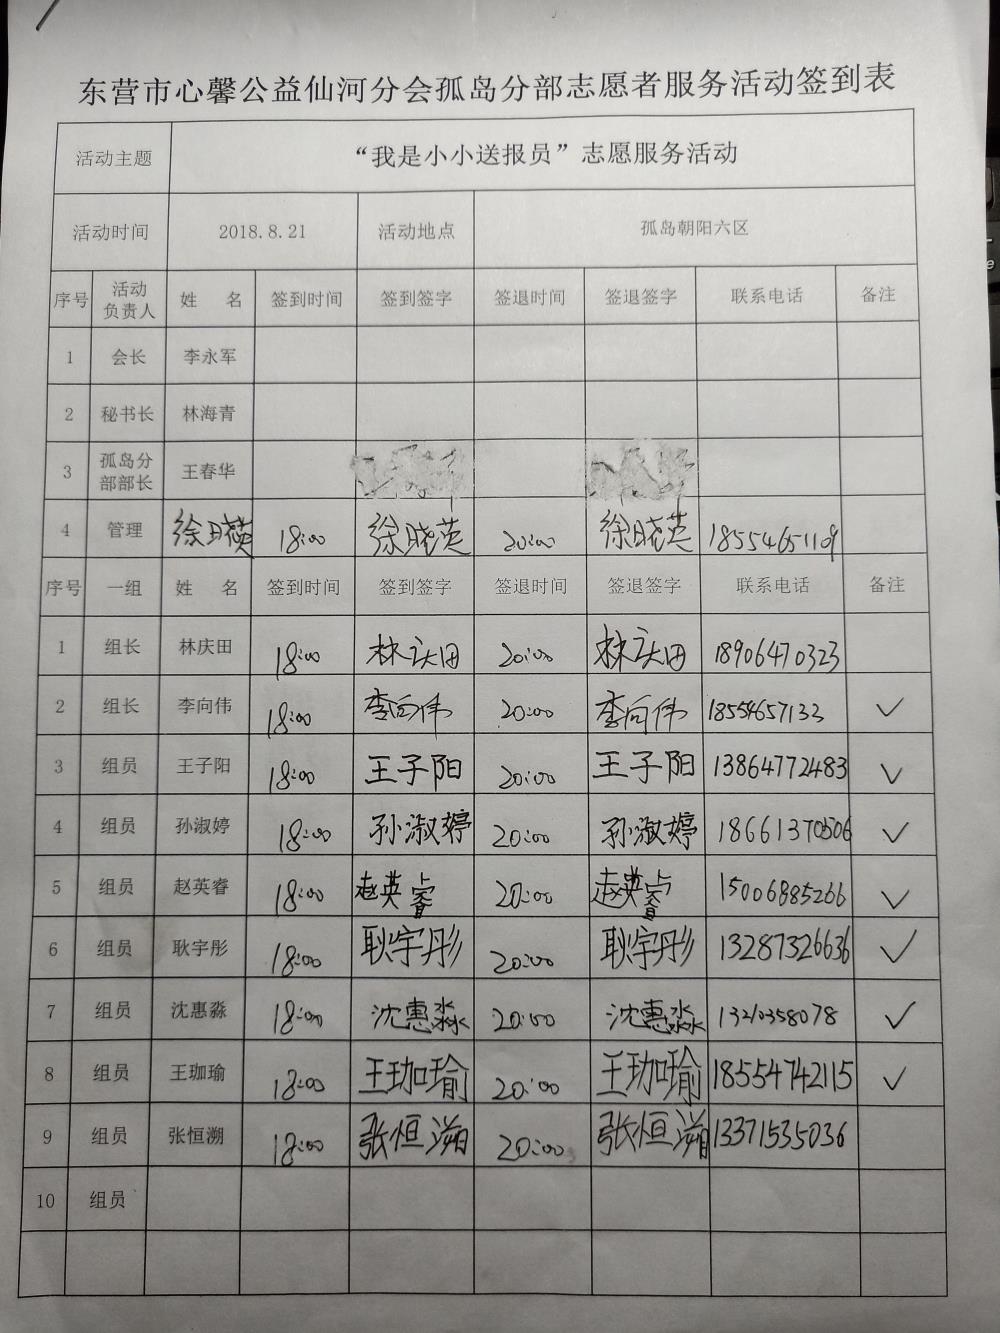 东营市心馨公益仙河分会孤岛分部志愿者服务活动签到表
活动主题 “我是小小送报员”志愿服务活动
活动时间 2018.8.21 活动地点 孤岛朝阳六区
序号 活动负责人 姓 名 签到时间 签到签字 签退时间 签退签字 联系电话 备注
1 会长 李永军
2 秘书长 林海青
3 孤岛分部部长 王春华
4 管理 徐晓英 18:00 徐晓英 20:00 徐晓英 18554651109
序号 一组 姓 名 签到时间 签到签字 签退时间 签退签字 联系电话 备注
1 组长 林庆田 18:00 林庆田 20:00 林庆田 18906470323
2 组长 李向伟 18:00 李向伟 20:00 李向伟 18554657133 ✓
3 组员 王子阳 18:00 王子阳 20:00 王子阳 13864772483 ✓
4 组员 孙淑婷 18:00 孙淑婷 20:00 孙淑婷 18661370506 ✓
5 组员 赵英睿 18:00 赵英睿 20:00 赵英睿 15006885266 ✓
6 组员 耿宇彤 18:00 耿宇彤 20:00 耿宇彤 13287326636 ✓
7 组员 沈惠淼 18:00 沈惠淼 20:00 沈惠淼 13210358078 ✓
8 组员 王珈瑜 18:00 王珈瑜 20:00 王珈瑜 18554742115 ✓
9 组员 张恒溯 18:00 张恒溯 20:00 张恒溯 13371535036
10 组员